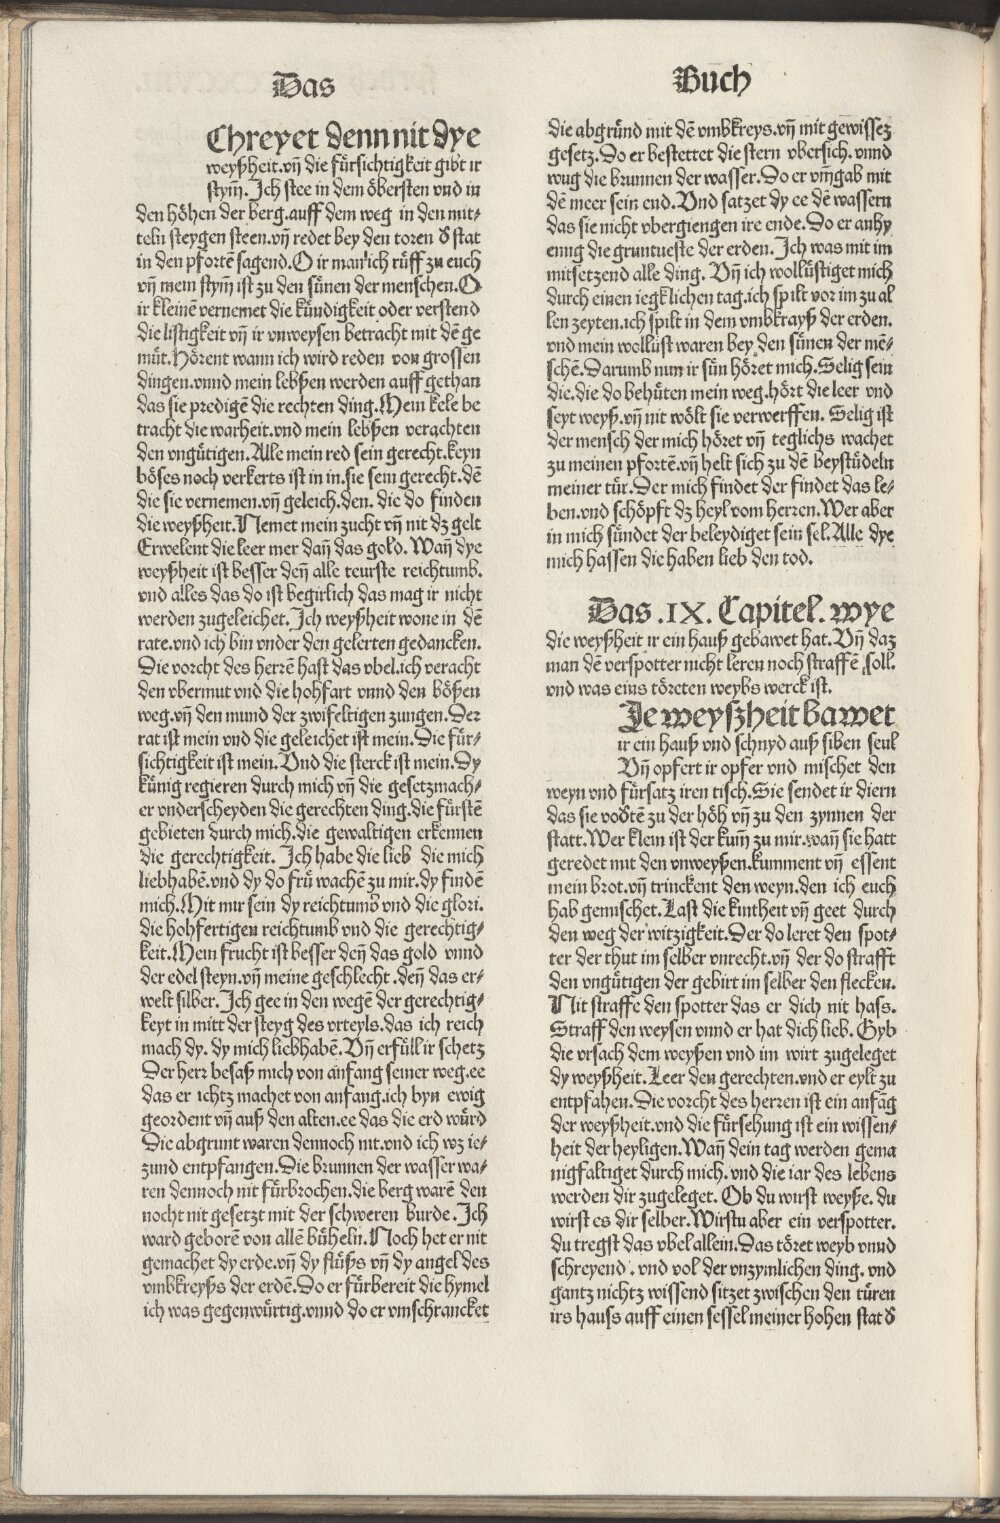 Das
Buch
Chreyet dennnit dye
weyßheit.vñ die fürsichtigkeit gibt ir
stym̄. Ich stee in dem öbersten vnd in
den höhen der berg.auff dem weg in den mit⸗
teln steygen steen.vñ redet bey den toren d̕ stat
in den pfortē sagend.O ir man ich rüff zu euch
vñ mein stym̄ ist zu den sünen der menschen.O
ir kleinē vernemet die kündigkeit oder verstend
die listigkeit vñ ir vnweysen betracht mit dē ge
müt.Hörent wann ich wird reden von grossen
dingen.vnnd mein lebßen werden auff gethan
das sie predigē die rechten ding.Mein kele be
tracht die warheit.vnd mein lebßen verachten
den vngütigen.Alle mein red sein gerecht.keyn
böses noch verkerts ist in in.sie sein gerecht.dē
die sie vernemen.vñ geleich.den. die do finden
die weyßheit.Nemet mein zucht vñ nit dz gelt
Erwelent die leer mer dañ das gold. Wañ dye
weyßheit ist besser deñ alle teurste reichtumb.
vnd alles das do ist begirlich das mag ir nicht
werden zugeleichet.Ich weyßheit wone in dē
rate.vnd ich bin vnder den gelerten gedancken.
Die vorcht des herrē hast das vbel.ich veracht
den vbermut vnd die hohfart vnnd den bößen
weg.vñ den mund der zwifeltigen zungen.Der
rat ist mein vnd die geleichet ist mein.Die für⸗
sichtigkeit ist mein.Vnd die sterck ist mein.Dy
künig regieren durch mich vñ die gesetzmach⸗
er vnderscheyden die gerechten ding.die fürstē
gebieten durch mich.die gewaltigen erkennen
die gerechtigkeit. Ich habe die lieb die mich
liebhabē.vnd dy do frü wachē zu mir.dy findē
mich.Mit mir sein dy reichtumb vnd die glori.
die hohfertigen reichtumb vnd die gerechtig⸗
keit.Mein frucht ist besser deñ das gold vnnd
der edel steyn.vñ meine geschlecht.deñ das er⸗
welt silber.Ich gee in den wegē der gerechtig⸗
keyt in mitt der steyg des vrteyls.das ich reich
mach dy. dy mich liebhabē.Vñ erfüll ir schetz
Der herr besaß mich von anfang seiner weg.ee
das er ichtz machet von anfang.ich byn ewig
geordent vñ auß den alten.ee das die erd würd
Die abgrunt waren dennoch nit.vnd ich wz ie⸗
zund entpfangen.Die brunnen der wasser wa⸗
ren dennoch nit fürbrochen.die berg warē den
nocht nit gesetzt mit der schweren burde.Ich
ward geborē von allē büheln.Noch het er nit
gemachet dy erde.vñ dy flüßs vñ dy angel des
vmbkreyßs der erdē.Do er fürbereit die hymel
ich was gegenwürtig.vnnd do er vmschrancket
die abgründ mit dē vmbkreys.vñ mit gewissez
gesetz.Do er bestettet die stern vbersich.vnnd
wug die brunnen der wasser.Do er vm̄gab mit
dē meer sein end.Vnd satzet dy ee dē wassern
das sie nicht vbergiengen ire ende.Do er anhy
enng die gruntueste der erden.Ich was mit im
mitsetzend alle ding. Vñ ich wollüstiget mich
durch einen iegklichen tag.ich spilt vor im zu al
len zeyten.ich spilt in dem vmbkrayß der erden.
vnd mein wollüst waren bey den sünen der mē⸗
schē.Darumb nun ir sün höret mich.Selig sein
die.die do behüten mein weg.hört die leer vnd
seyt weyß.vñ nit wölt sie verwerffen. Selig ist
der mensch der mich höret vñ teglichs wachet
zu meinen pfortē.vñ helt sich zu dē beystüdeln
meiner tür.Der mich findet der findet das le⸗
ben.vnd schöpft dz heyl vom herren.Wer aber
in mich sündet der beleydiget sein sel.Alle dye
mich hassen die haben lieb den tod.
Das .IX. Capitel. wye
die weyßheit ir ein hauß gebawet hat.Vñ daz
man dē verspotter nicht leren noch straffē soll.
vnd was eins töreten weybs werck ist.
Je weyßheit bawet
ir ein hauß vnd schnyd auß siben seul
Vñ opfert ir opfer vnd mischet den
weyn vnd fürsatz iren tisch.Sie sendet ir diern
das sie vod̕tē zu der höh vñ zu den zynnen der
statt.Wer klein ist der kum̄ zu mir.wañ sie hatt
geredet mit den vnweyßen.kumment vñ essent
mein brot.vñ trinckent den weyn.den ich euch
hab gemischet.Last die kintheit vñ geet durch
den weg der witzigkeit.Der do leret den spot⸗
ter der thut im selber vnrecht.vñ der do strafft
den vngütigen der gebirt im selber den flecken.
Nit straffe den spotter das er dich nit hass.
Straff den weysen vnnd er hat dich lieb. Gyb
die vrsach dem weyßen vnd im wirt zugeleget
dy weyßheit.Leer den gerechten.vnd er eylt zu
entpfahen.Die vorcht des herren ist ein anfāg
der weyßheit.vnd die fürsehung ist ein wissen⸗
heit der heyligen.Wañ dein tag werden gema
nigfaltiget durch mich.vnd die iar des lebens
werden dir zugeleget. Ob du wirst weyße.du
wirst es dir selber.Wirstu aber ein verspotter.
du tregst das vbel allein.Das töret weyb vnnd
schreyend.vnd vol der vnzymlichen ding. vnd
gantz nichtz wissend sitzet zwischen den türen
irs hauss auff einen sessel meiner hohen stat d̕